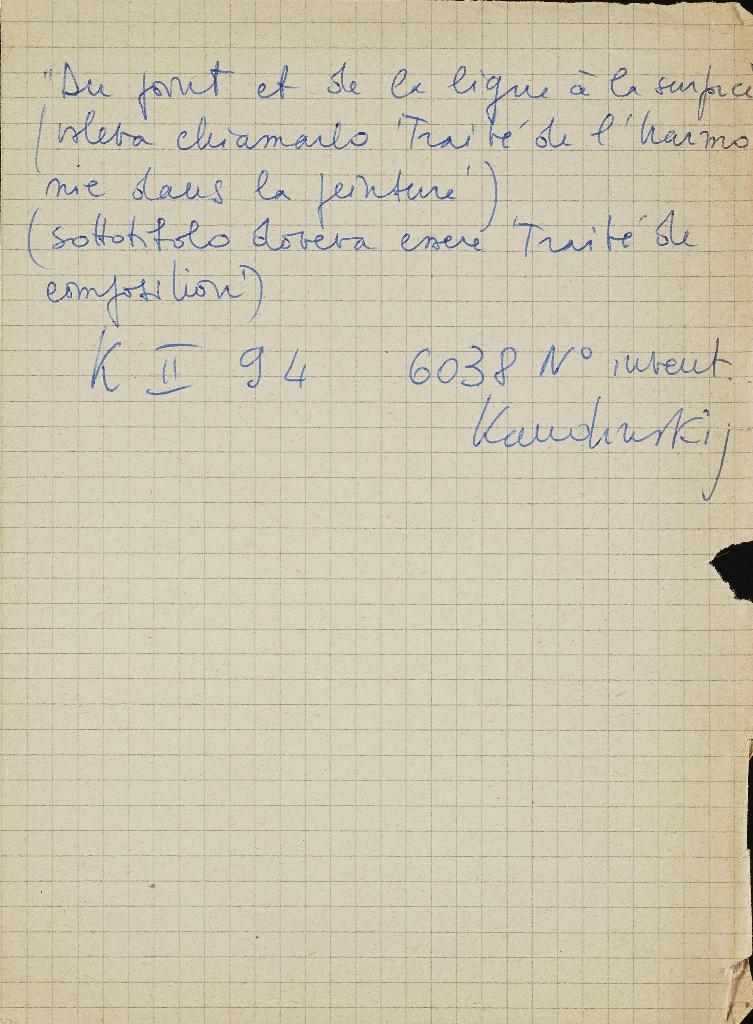 "Du point et de la ligne à la surface
(voleva chiamarlo 'Traité de l'harmo
nie dans la peinture')
(sottotitolo doveva essere 'Traité de
composition')
K II 94 6038 N° invent.
Kandinskij